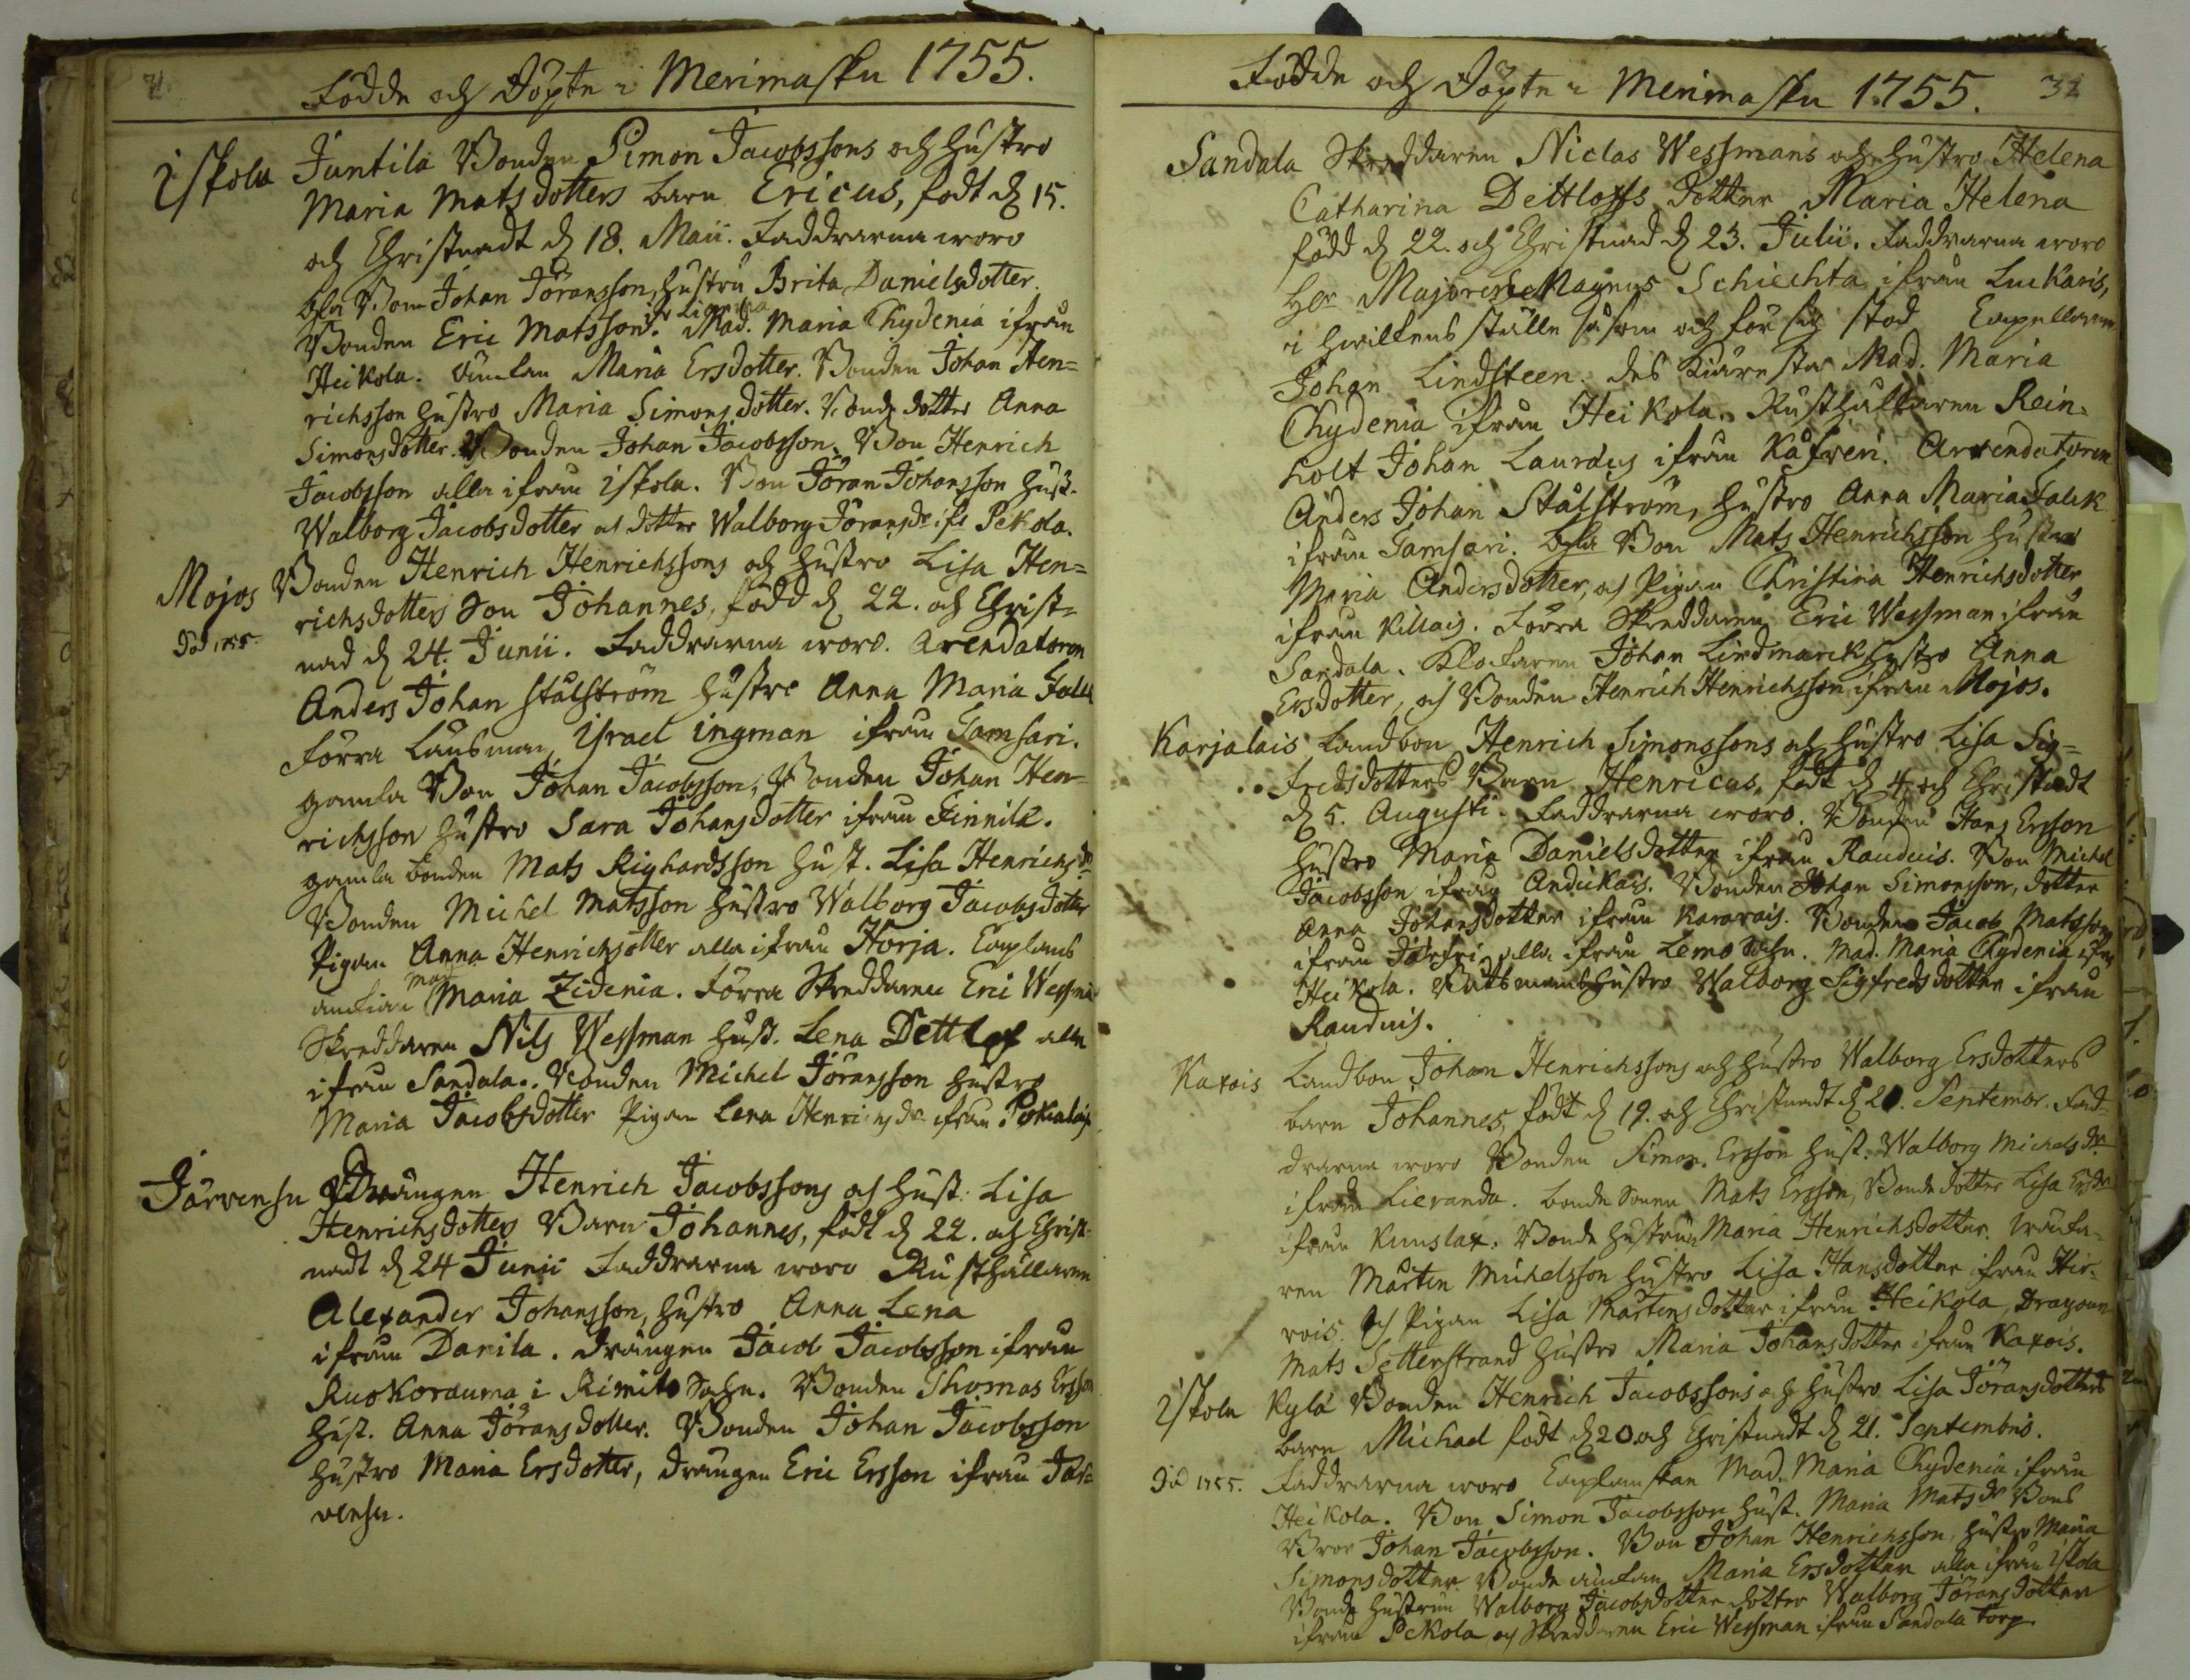 Födde och Döpte i Merimasku 1755.
Iskola Juntila Bonden Simon Jacobssons och hustro
Maria Matsdotters barn Ericus, födt d 15.
och Christnadt d 18. Maii. Faddrarna woro
Johan Jöransson, hustru Brita Danielsdotter.
Bonden Eric Matsson. Mad. Maria Chydenia ifrån
Heikola. änkan Maria Ersdotter. Bonden Johan Hen=
richsson hustro Maria Simonsdotter. Bonde dotter Anna
Simonsdotter. Bonden Johan Jacobsson. Bon Henrich
Jacobsson alla ifrån Iskola. Bon Jöran Johansson hust.
Walborg Jacobsdotter och dotter Walborg Jöransdr ifr Pekola.
Mojos Bonden Henrich Henrichssons och hustro Lisa Hen=
richsdotters Son Johannes, född d 22. och Christ=
död 1755.
nad d 24. Junii. Faddrarna woro. Arendatoren
Anders Johan Stålström hustro Anna Maria Falck
Förra Länsman Israel Ingman ifrån Tamsari.
gamla Bon Johan Jacobsson, Bonden Johan Hen=
richsson hustro Sara Johansdotter ifrån Finnilä.
gamla bonden Mats Righardsson hust. Lisa Henrichsdr
Bonden Michel Matsson hustro Walborg Jacobsdotter
Pigan Anna Henrichsdotter alla ifrån Korja. Caplans
änkian Mad Maria Zidenia. Förra Skreddaren Eric Wessman
Skreddaren Nils Wessman hust. Lena Dettlof alla
ifrån Sandala. Bonden Michel Jöransson hustro
Maria Jacobsdotter Pigan Lena Henrichsdr ifrån
Järvensu Drängen Henrich Jacobssons och hust: Lisa
Henrichsdotters Barn Johannes, födt d 22. och Christ=
nadt d 24 Junii Faddrarna woro Rusthållaren
Alexander Johansson, hustro Anna Lena
ifrån Danila. Drängen Jacob Jacobsson ifrån
Ruokorauma i Rimito Sohn. Bonden Thomas Ersson
hust. Anna Jöransdotter. Bonden Johan Jacobsson
hustro Maria Ersdotter, drängen Eric Ersson ifrån Jär=
vensu.
Födde och Döpte i Merimasku 1755. 32
Sandala Skreddaren Niclas Wessmans och hustro Helena
Catharina Dettloffs dotter Maria Helena
född d 22. och Christnad d 23. Julii. Faddrarna woro
Hr Majoren Magnus Schiechta ifrån Luckaris,
i hwilkens ställe såsom och för sig stod Capellanen
Johan Lindsteen. des Käresta Mad. Maria
Chydenia ifrån Heikola. Rusthållaren Rein=
holt Johan Lauraeus ifrån Kåfweri. Arrendatoren
Anders Johan Stålström, hustro Anna Maria Falck
ifrån Tamsari. Bon Mats Henrichsson hustro
Maria Andersdotter, och Pigan Christina Henrichsdotter
ifrån Killais. Förra Skreddaren Eric Wessman ifrån
Sandala. Klockaren Johan Lindmarck hustro Anna
Ersdotter, och Bonden Henrich Henrichsson ifrån Mojos.
Karjalais Landbon Henrich Simonssons och hustro Lisa Sig=
fredsdotters Barn Henricus, födt d 4. och Christnadt
d 5. Augusti. Faddrarna woro. Bonden Hans Ersson
hustro Maria Danielsdotter ifrån Rauduis. Bon Michel
Jacobsson ifrån Andickais. Bonden Johan Simonsson, dotter
Anna Johansdotter ifrån Kararais. Bonden Jacob Matsson
ifrån Järfwi alla ifrån Lemo Sohn. Mad. Maria Chydenia ifrån
Heikola. Båtsmans hustro Walborg Sigfredsdotter ifrån
Rauduis.
Kaxois Landbon Johan Henrichssons och hustro Walborg Ersdotters
barn Johannes, födt d 19. och Christnadt d 20. Septembr. Fad=
drarna woro Bonden Simon Ersson hust. Walborg Michelsdr
ifrån Lieranda. bonde Sonen Mats Ersson, Bonde dotter Lisa Ersdr
ifrån Kunslax. Bonde hustrun Maria Henrichsdotter.
ren Mårten Michelsson hustro Lisa Hansdotter ifrån Hir=
vois. Och Pigan Lisa Mårtensdotter ifrån Heikola, Dragoun
Mats Setterstrand hustro Maria Johansdotter ifrån Kaxois.
Iskola Kylä Bonden Henrich Jacobssons och hustro Lisa Jöransdotters
barn Michael födt d 20 och Christnadt d 21. Septembris.
Död 1755. Faddrarna woro Caplanskan Mad. Maria Chydenia ifrån
Heikola. Bon Simon Jacobsson hust. Maria Matsdr Bons
Bror Johan Jacobsson. Bon Johan Henrichsson, hustro Maria
Simonsdotter Bonde änkan Maria Ersdotter alla ifrån Iskola
Bonde hustrun Walborg Jacobsdotter dotter Walborg Jöransdotter
ifrån Pekola och Skreddaren Eric Wessman ifrån Sandala torp.